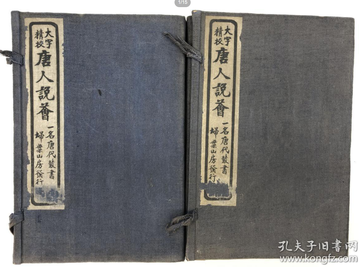 大字
精校
唐人說薈
一名唐代叢書
掃葉山房發行
大字
精校
唐人說薈
一名唐代叢書
掃葉山房發行
孔夫子旧书网
www.kongfz.com